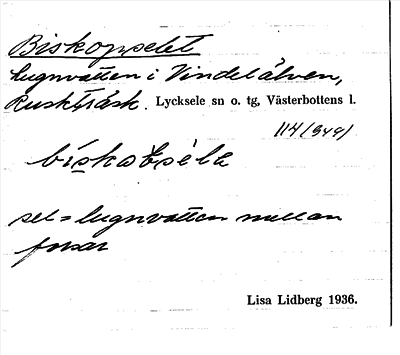 Biskopselet
Lugnvatten i Vindelälven,
Ruskträsk. Lycksele sn o. tg, Västerbottens l.
sel = lugnvatten mellan
forsar
Lisa Lidberg 1936.